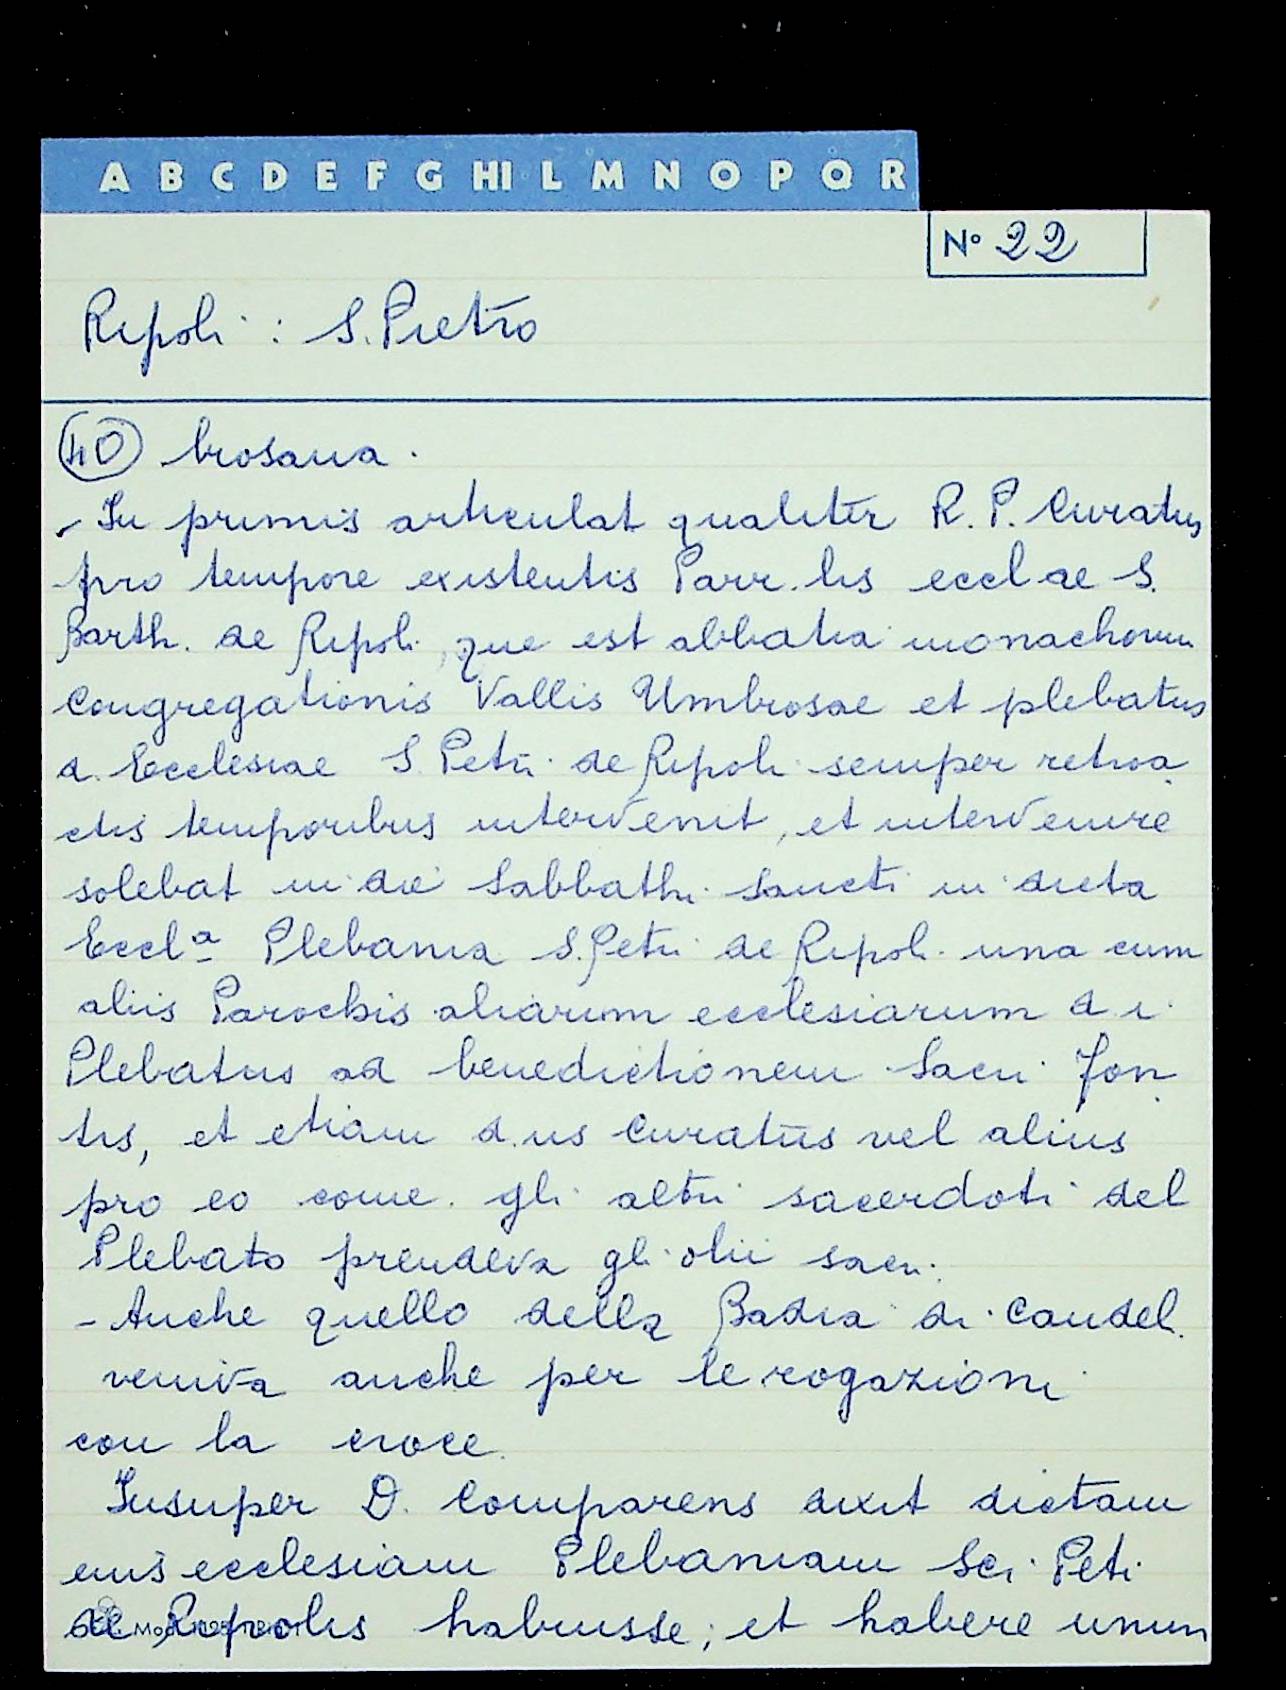 A B C D E F G HI L M N O P Q R
N° 22
Ripoli : S. Pietro
40 brosana.
- In primis articulat qualiter R. P. Curatus
pro tempore existentis Parr.lis eccl ae S.
Barth. de Ripoli, que est abbatia monachorum
Congregationis Vallis Umbrosae et plebatus
d. Ecclesiae S. Petri de Ripoli semper retroa
ctis temporibus intervenit, et intervenire
solebat in die Sabbathi Sancti in dicta
Eccl.a Plebania S. Petri de Ripoli una cum
aliis Parochis aliarum ecclesiarum d i
Plebatus ad benedictionem Sacri Fon
tis, et etiam d.us Curatus vel alius
pro eo come gli altri sacerdoti del
Plebato prendeva gli olii sacri.
- Anche quello della Badia di Candel.
veniva anche per le rogazioni
con la croce.
Insuper D. Comparens dixit dictam
eius ecclesiam Plebaniam Sci Petri
de Ripolis habuisse; et habere unum